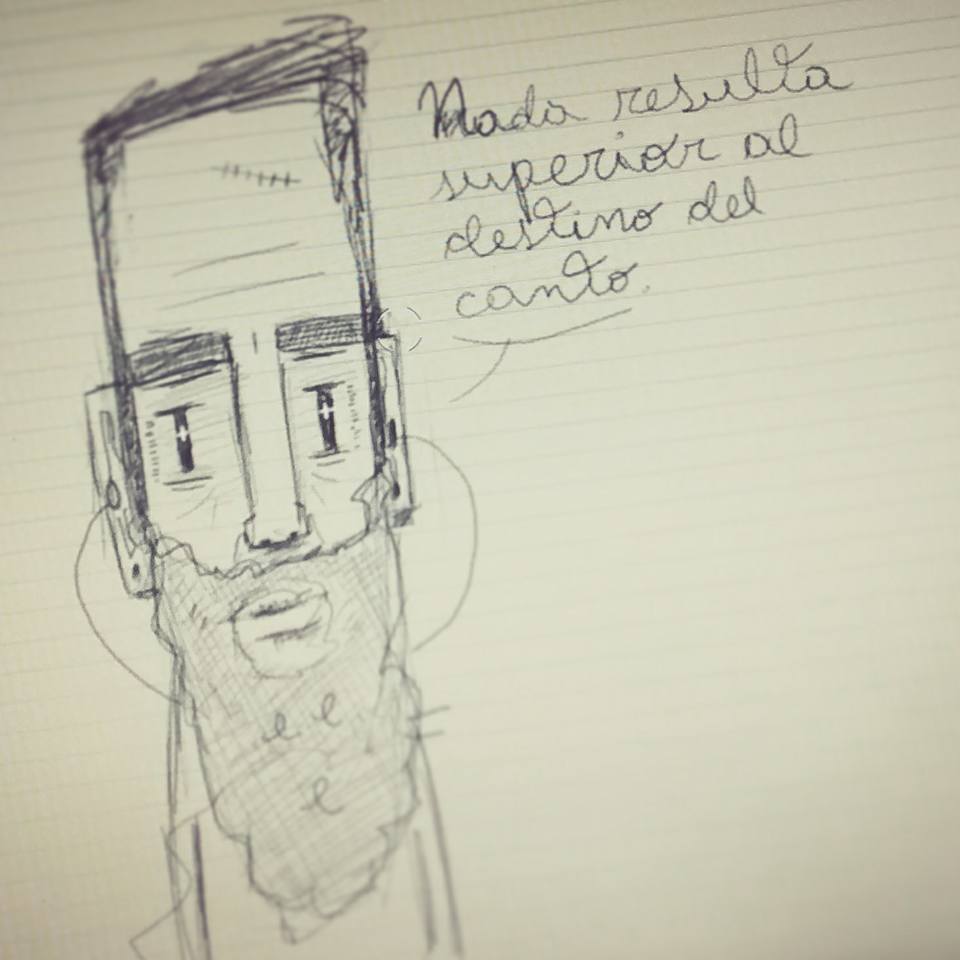 Nada resulta
superior al
destino del
canto.